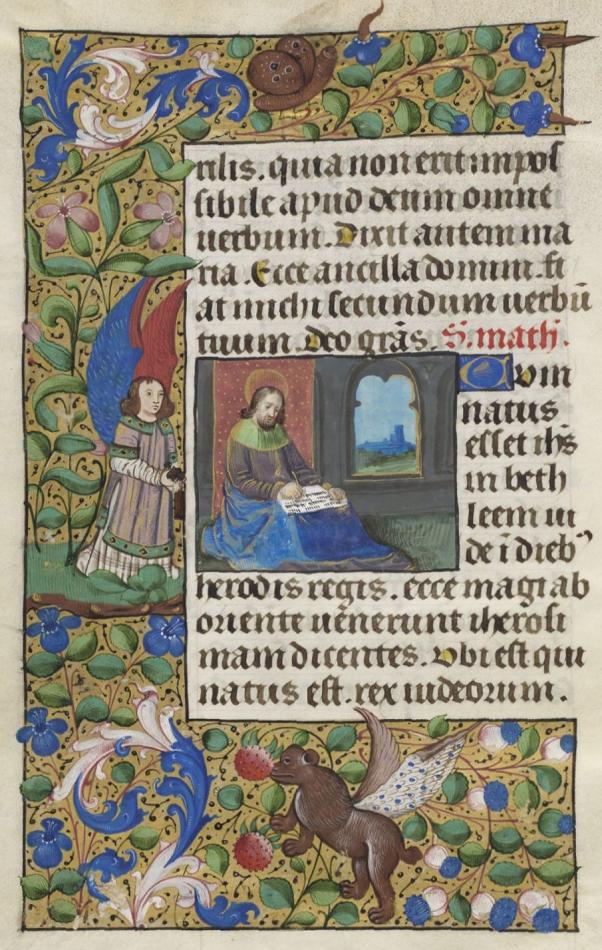 rilis. quia non erit impos
sibile apud deum omne
uerbum. Dixit autem ma
ria. Ecce ancilla domini. fi
at michi secundum uerbū
tuum. Deo grās. S. math̄.
Cum
natus
esset ih̄s
in beth
leem iu
de ī dieb⁹
herodis regis. ecce magi ab
oriente uenerunt iherosi
mam dicentes. vbi est qui
natus est. rex iudeorum.